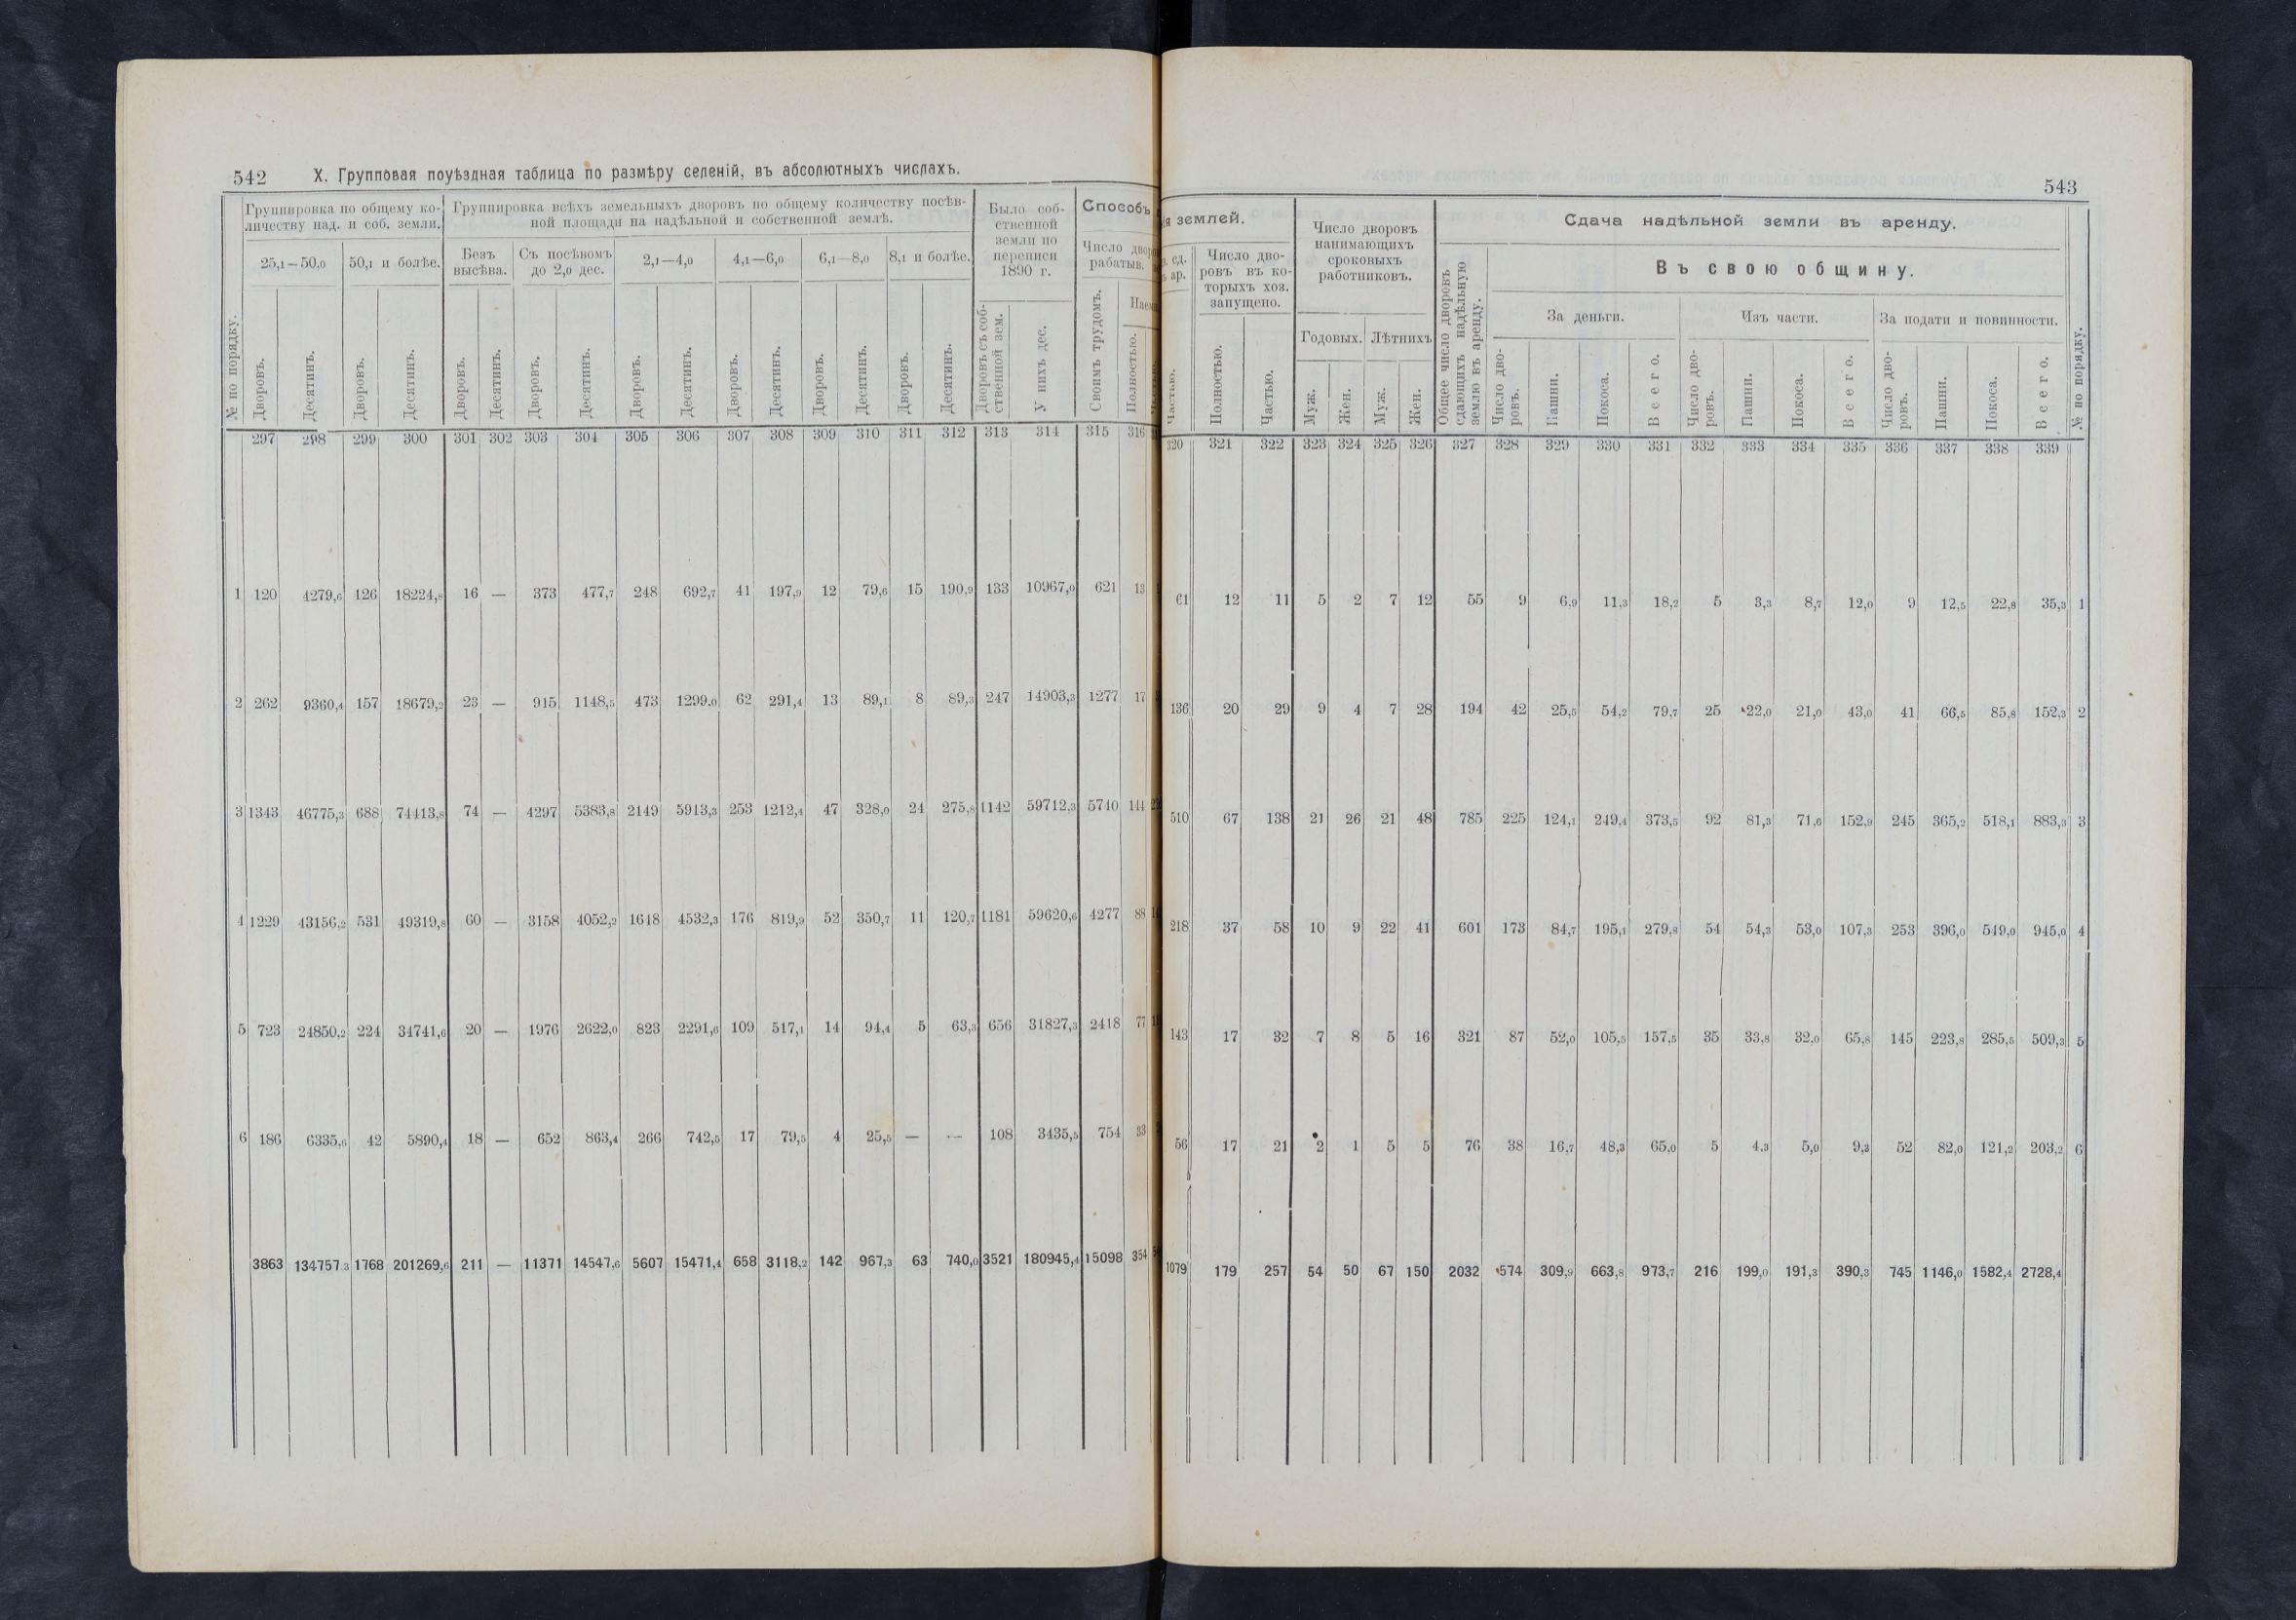 542 X. Групповая поуѣздная таблица по размѣру селеній, въ абсолютныхъ числахъ.
№ по порядку.
Группировка по общему ко-
личеству над. и соб. земли.
25,1—50,0 50,1 и болѣе.
Дворовъ. Десятинъ. Дворовъ. Десятинъ.
Группировка всѣхъ земельныхъ дворовъ по общему количеству посѣв-
ной площади на надѣльной и собственной землѣ.
Безъ
высѣва.
Съ посѣвомъ
до 2,0 дес.
2,1—4,0 4,1—6,0 6,1—8,0 8,1 и болѣе.
Дворовъ. Десятинъ. Дворовъ. Десятинъ. Дворовъ. Десятинъ. Дворовъ. Десятинъ. Дворовъ. Десятинъ. Дворовъ. Десятинъ.
Было соб-
ственной
земли по
переписи
1890 г.
Дворовъ съ соб-
ственной зем.
У нихъ дес.
Способъ
Число двор
рабатыв.
Своимъ трудомъ.
Наем
Полностью.
297 298 299 300 301 302 303 304 305 306 307 308 309 310 311 312 313 314 315 316
1 120 4279,6 126 18224,8 16 — 373 477,7 248 692,7 41 197,9 12 79,6 15 190,9 133 10967,0 621 13
2 262 9360,4 157 18679,2 23 — 915 1148,5 473 1299,0 62 291,4 13 89,1 8 89,3 247 14903,3 1277 17
3 1343 46775,3 688 74413,8 74 — 4297 5383,8 2149 5913,3 253 1212,4 47 328,0 24 275,8 1142 59712,3 5740 144
4 1229 43156,2 531 49319,8 60 — 3158 4052,2 1648 4532,3 176 819,9 52 350,7 11 120,7 1181 59620,6 4277 88
5 723 24850,2 224 34741,6 20 — 1976 2622,0 823 2291,6 109 517,1 14 94,4 5 63,3 656 31827,3 2418 77
6 186 6335,6 42 5890,4 18 — 652 863,4 266 742,5 17 79,5 4 25,5 — — 108 3435,5 754 33
3863 134757,3 1768 201269,6 211 — 11371 14547,6 5607 15471,4 658 3118,2 142 967,3 63 740,0 3521 180945,4 15098 354
543
я землей.
Частью.
Число дво-
ровъ въ ко-
торыхъ хоз.
запущено.
Полностью. Частью.
Число дворовъ
нанимающихъ
сроковыхъ
работниковъ.
Годовыхъ. Лѣтнихъ
Муж. Жен. Муж. Жен.
Сдача надѣльной земли въ аренду.
Общее число дворовъ
сдающихъ надѣльную
землю въ аренду.
Въ свою общину.
За деньги. Изъ части. За подати и повинности.
Число дво-
ровъ.
Пашни. Покоса. Всего.
Число дво-
ровъ.
Пашни. Покоса. Всего.
Число дво-
ровъ.
Пашни. Покоса. Всего.
№ по порядку.
320 321 322 323 324 325 326 327 328 329 330 331 332 333 334 335 336 337 338 339
61 12 11 5 2 7 12 55 9 6,9 11,3 18,2 5 3,3 8,7 12,0 9 12,5 22,8 35,3 1
136 20 29 9 4 7 28 194 42 25,5 54,2 79,7 25 22,0 21,0 43,0 41 66,5 85,8 152,3 2
510 67 138 21 26 21 48 785 225 124,1 249,4 373,5 92 81,3 71,6 152,9 245 365,2 518,1 883,3 3
218 37 58 10 9 22 41 601 173 84,7 195,1 279,8 54 54,3 53,0 107,3 253 396,0 549,0 945,0 4
143 17 32 7 8 5 16 321 87 52,0 105,5 157,5 35 33,8 32,0 65,8 145 223,8 285,5 509,3 5
56 17 21 2 1 5 5 76 38 16,7 48,3 65,0 5 4,3 5,0 9,3 52 82,0 121,2 203,2 6
1079 179 257 54 50 67 150 2032 574 309,9 663,8 973,7 216 199,0 191,3 390,3 745 1146,0 1582,4 2728,4